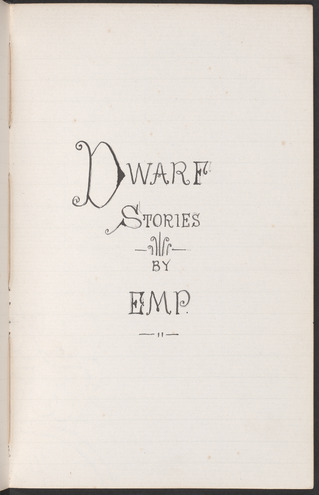 DWARF
STORIES
BY
EMP.